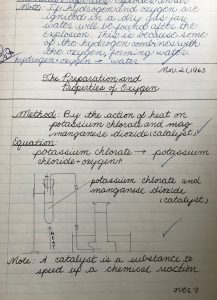 Note: If hydrogen and oxygen are
ignited in a dry gas jar
water will be found after the
explosion. This is because some
of the hydrogen combines with
the oxygen, forming water
hydrogen + oxygen → water
Nov. 21, 1963
The Preparation and
Properties of Oxygen
Method: By the action of heat on
potassium chlorate and mag
manganese dioxide (catalyst)
Equation:
potassium chlorate → potassium
chloride + oxygen
potassium chlorate and
manganese dioxide
(catalyst)
HEAT
Note: A catalyst is a substance to
speed up a chemical reaction.
over